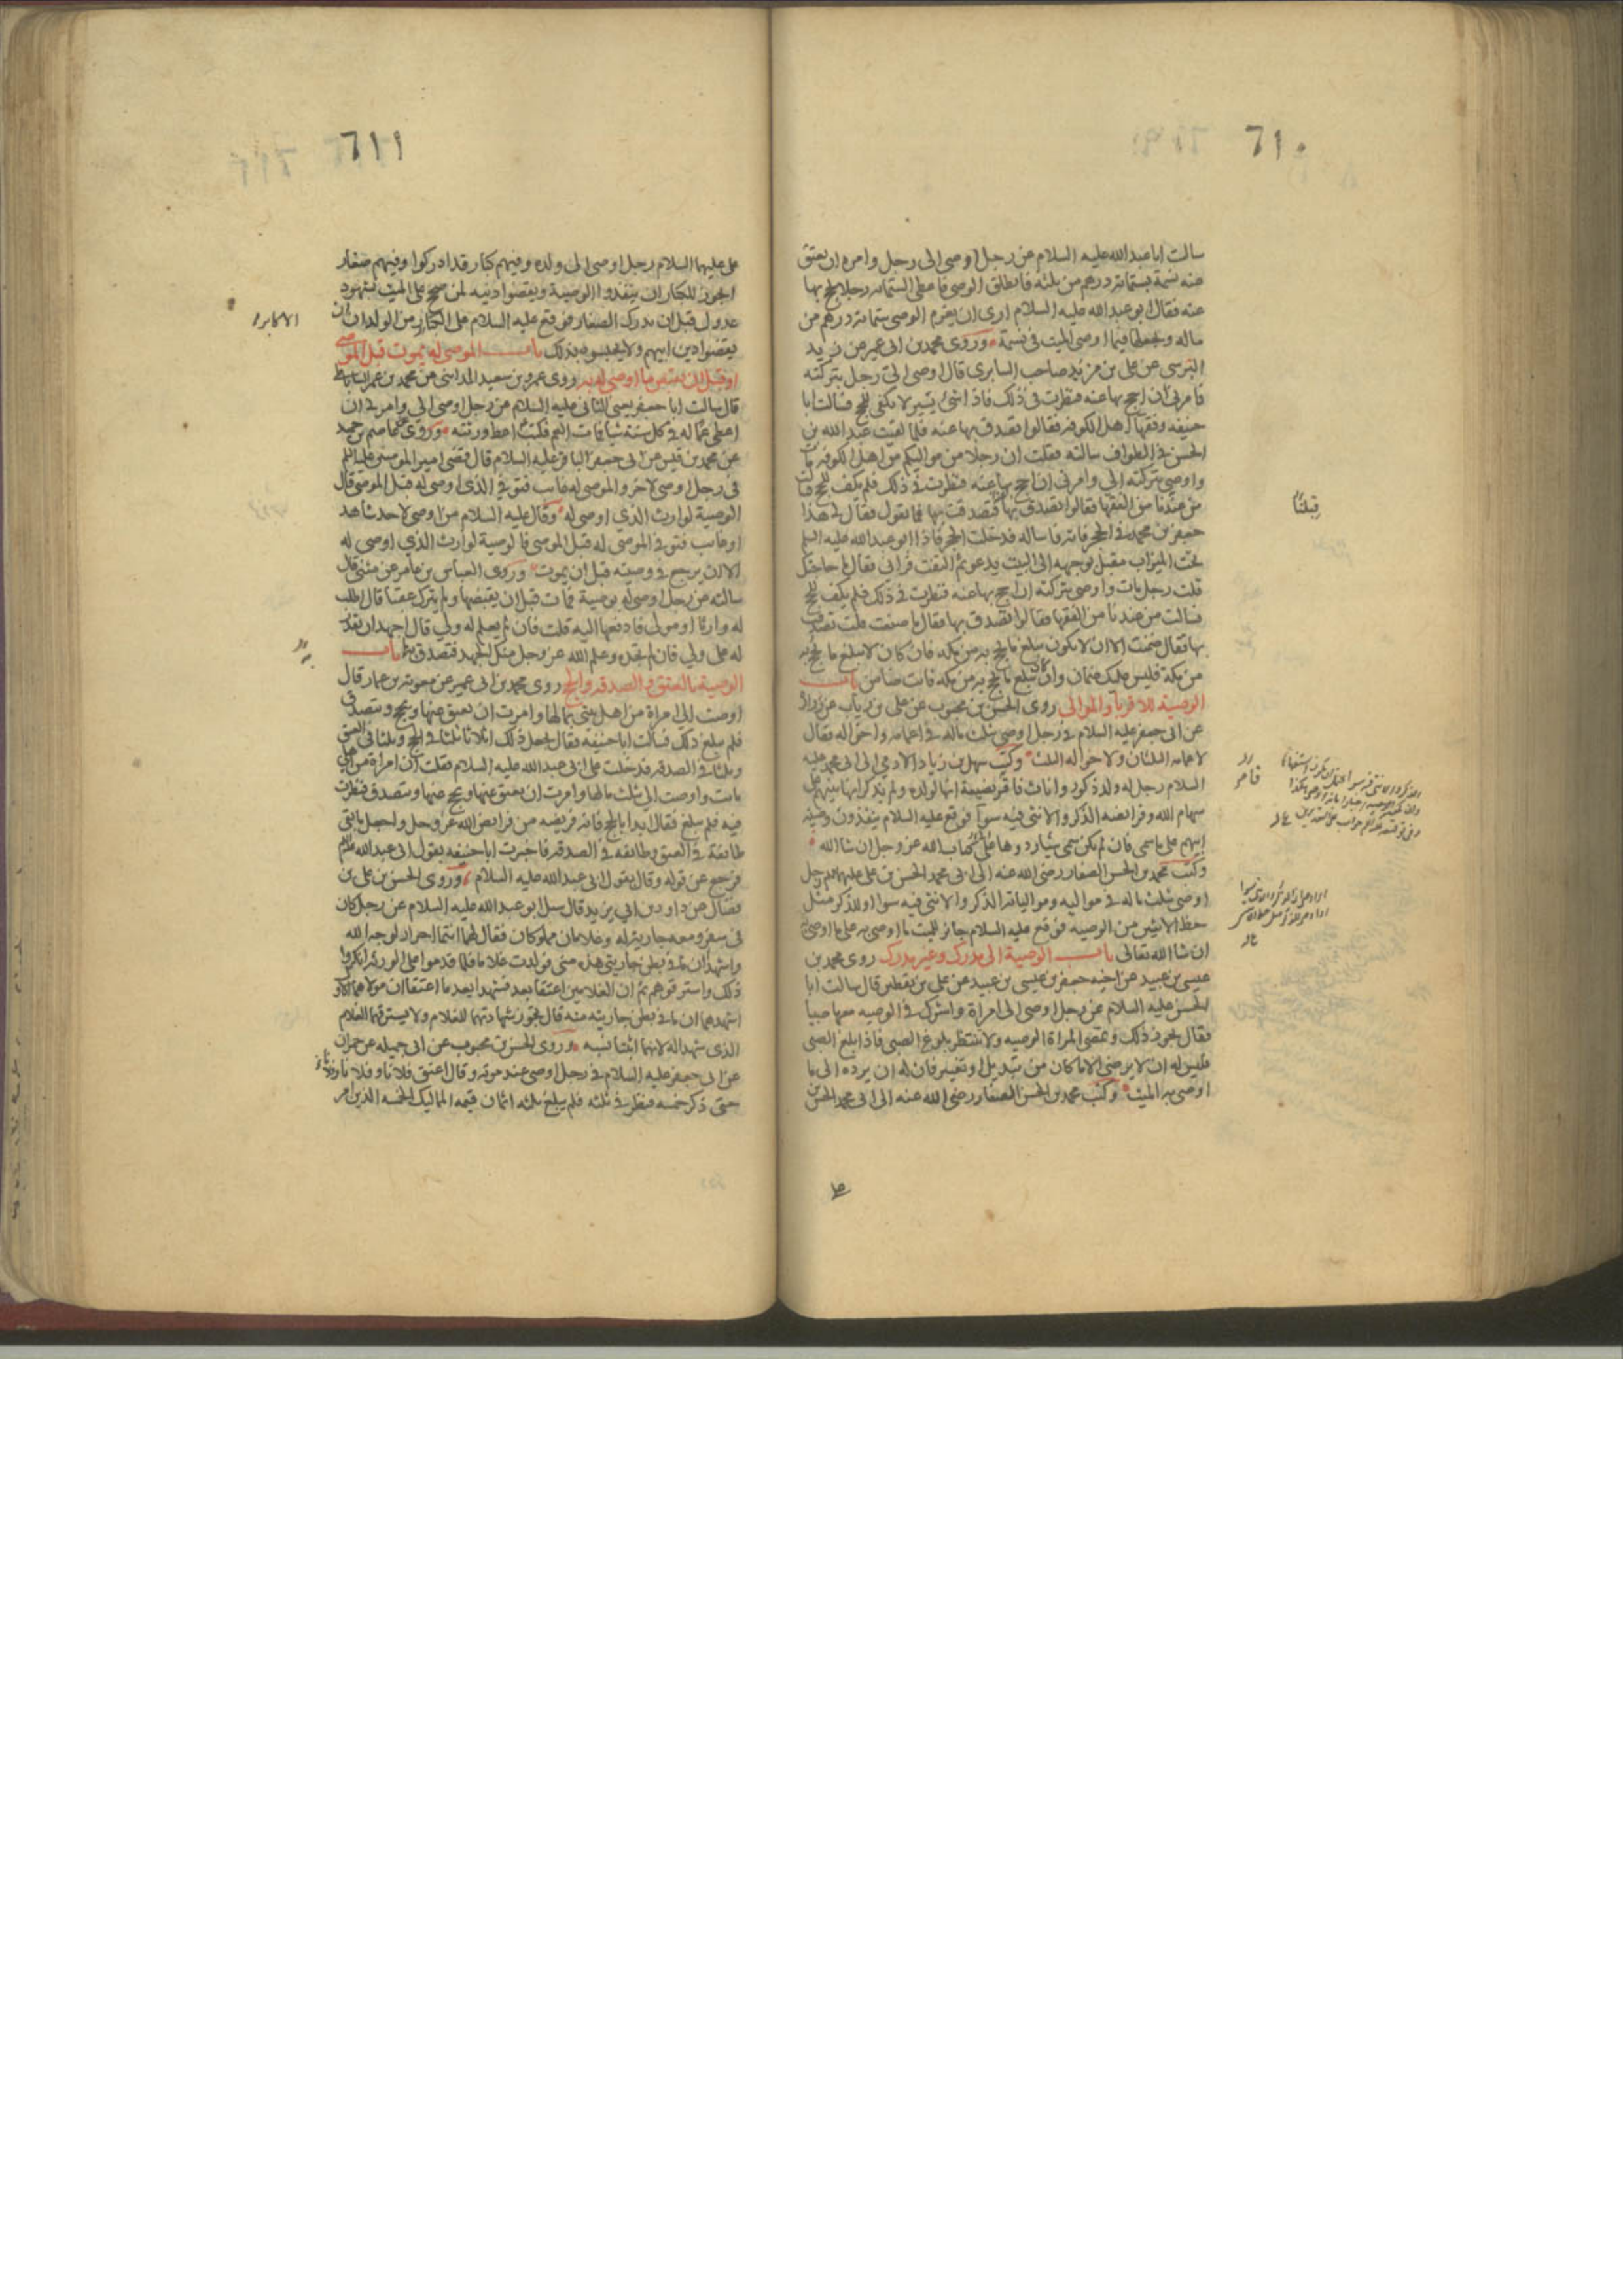 ٦١٠
سالت ابا عبدالله عليه السلام عن رجل اوصى الى رجل وامره ان يعتق
عنه نسمة بستمائة درهم من ثلثه فانطلق الوصي فاعطى الستمائة رجلا يحج بها
عنه فقال ابو عبد الله عليه السلام ارى ان يغرم الوصي ستمائة درهم من
ماله ويجعلها فيما اوصى الميت في نسمة وروى محمد بن ابي عمير عن زيد
النرسي عن علي بن مزيد صاحب السابري قال اوصى الي رجل بتركته
فامرني ان احج بها عنه فنظرت في ذلك فاذا شئ يسير لا يكفي للحج فسالت ابا
حنيفه وفقها اهل الكوفه فقالوا تصدق بها عنه فلما لقيت عبد الله بن
الحسن في الطواف سالته فقلت ان رجلا من مواليكم من اهل الكوفه مات
واوصى بتركته الي وامرني ان احج بها عنه فنظرت في ذلك فلم يكف للحج فسالت
من عندنا من الفقها فقالوا تصدق بها فتصدقت بها فما تقول فقال لي هذا
جعفر بن محمد في الحجر فاته فاساله فدخلت الحجر فاذا ابو عبد الله عليه السلم
تحت الميزاب مقبل بوجهه الى البيت يدعو ثم التفت فراني فقال ما حاجتك
قلت رجل مات واوصى بتركته ان احج بها عنه فنظرت في ذلك فلم يكف للحج
فسالت من عندنا من الفقها فقالوا تصدق بها فقال ما صنعت قلت تصدقت
بها فقال ضمنت الا ان لا يكون يبلغ ما يحج به من مكه فان كان لا يبلغ ما يحج به
من مكة فليس عليك ضمان وان كان يبلغ ما يحج به من مكه فانت ضامن باب
الوصية للاقربا والموالى روى الحسن بن محبوب عن علي بن رياب عن زرارة
عن ابي جعفر عليه السلام في رجل اوصى بثلث ماله في اعمامه واخواله فقال
لاعمامه الثلثان ولاخواله الثلث وكتب سهل بن زياد الادمي الى ابي محمد عليه
السلام رجل له ولد ذكور واناث فاقر بضيعة انها لولده ولم يذكر انها بينهم على
سهام الله وفرايضه الذكر والانثى فيه سوآ فوقع عليه السلام ينفذون وصية
ابيهم على ما سمى فان لم يكن سمى شيئا ردوها على كتاب الله عز وجل ان شا الله
وكتب محمد بن الحسن الصفار رضى الله عنه الى ابي محمد الحسن بن علي عليهما السلم رجل
اوصى بثلث ماله في مواليه ومولياته الذكر والانثى فيه سوا او للذكر مثل
حظ الانثيين من الوصيه فوقع عليه السلام جائز للميت ما اوصى به على ما اوصى
ان شا الله تعالى باب الوصية الى مدرك وغير مدرك روى محمد بن
عيسى بن عبيد عن اخيه جعفر بن عيسى بن عبيد عن علي بن يقطين قال سالت ابا
الحسن عليه السلام عن رجل اوصى الى امراة واشرك في الوصيه معها صبيا
فقال يجوز ذلك وتمضي المراة الوصيه ولا تنتظر بلوغ الصبى فاذا بلغ الصبى
فليس له ان لا يرضى الا ما كان من تبديل او تغيير فان له ان يرده الى ما
اوصى به الميت وكتب محمد بن الحسن الصفار رضى الله عنه الى ابي محمد الحسن بن
قبلنا
على
٦١١
علي عليهما السلام رجل اوصى الى ولده وفيهم كبار قد ادركوا وفيهم صغار
ايجوز للكبار ان ينفذوا الوصية ويقضوا دينه لمن صح على الميت بشهود
عدول قبل ان يدرك الصغار فوقع عليه السلام على الكبار من الولد ان
يقضوا دين ابيهم ولا يحبسوه بذلك باب الموصى له يموت قبل الموصي
او قبل ان يقبض ما اوصى له به روى عمرو بن سعيد المدايني عن محمد بن عمر الساباطي
قال سالت ابا جعفر يعنى الثاني عليه السلام عن رجل اوصى الي وامرني ان
اعطي عما له في كل سنة شيئا فمات العم فكتب اعط ورثته وروى عاصم بن حميد
عن محمد بن قيس عن ابي جعفر الباقر عليه السلام قال قضى امير المومنين عليه السلم
في رجل اوصى لاخر والموصى له غايب فتوفي الذي اوصى له قبل الموصي قال
الوصية لوارث الذي اوصى له وقال عليه السلام من اوصى لاحد شاهد
او غايب فتوفي الموصى له قبل الموصي فالوصية لوارث الذي اوصى له
الا ان يرجع في وصيته قبل ان يموت وروى العباس بن عامر عن مثنى قال
سالته عن رجل اوصى له بوصية فمات قبل ان يقبضها ولم يترك عقبا قال اطلب
له وارثا او مولى فادفعها اليه قلت فان لم يعلم له ولي قال اجهد ان تقدر
له على ولي فان لم تجده وعلم الله عز وجل منك الجهد فتصدق بها باب
الوصية بالعتق والصدقه والحج روى محمد بن ابى عمير عن معوية بن عمار قال
اوصت الي امراة من اهل بيتي بمالها وامرت ان يعتق عنها ويحج ويتصدق
فلم يبلغ ذلك فسالت ابا حنيفه فقال يجعل ذلك اثلاثا ثلثا في الحج وثلثا في العتق
وثلثا في الصدقه فدخلت على ابي عبد الله عليه السلام فقلت ان امراة من اهلي
ماتت واوصت الي بثلث مالها وامرت ان يعتق عنها ويحج عنها ويتصدق فنظرت
فيه فلم يبلغ فقال ابدا بالحج فانه فريضه من فرايض الله عز وجل واجعل ما بقي
طائفة في العتق وطائفه في الصدقه فاخبرت ابا حنيفه بقول ابي عبد الله عليه السلم
فرجع عن قوله وقال بقول ابي عبد الله عليه السلام وروى الحسن بن علي بن
فضال عن داود بن ابي يزيد قال سئل ابو عبد الله عليه السلام عن رجل كان
في سفر ومعه جارية له وغلامان مملوكان فقال لهما انتما احرار لوجه الله
واشهدا ان ما في بطن جاريتى هذه منى فولدت غلاما فلما قدموا على الورثه انكروا
ذلك واسترقوهم ثم ان الغلامين اعتقا بعد فشهدا بعد ما اعتقا ان مولاهما الاول
اشهدهما ان ما في بطن جاريته منه قال تجوز شهادتهما للغلام ولا يسترقهما الغلام
الذى شهدا له لانهما اثبتا نسبه وروى الحسن بن محبوب عن ابي جميله عن حمران
عن ابى جعفر عليه السلام في رجل اوصى عند موته وقال اعتق فلانا وفلانا وفلانا
حتى ذكر خمسه فنظر في ثلثه فلم يبلغ ثلثه اثمان قيمه المماليك الخمسه الذين امر
الاكابر